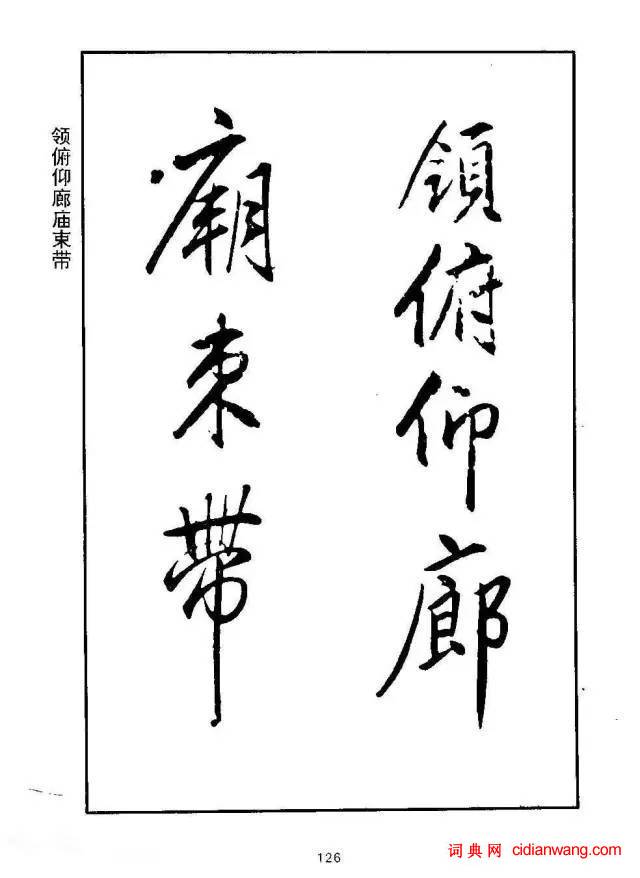 領俯仰廊
廟束帶
领俯仰廊庙束带
126
词典网 cidianwang.com